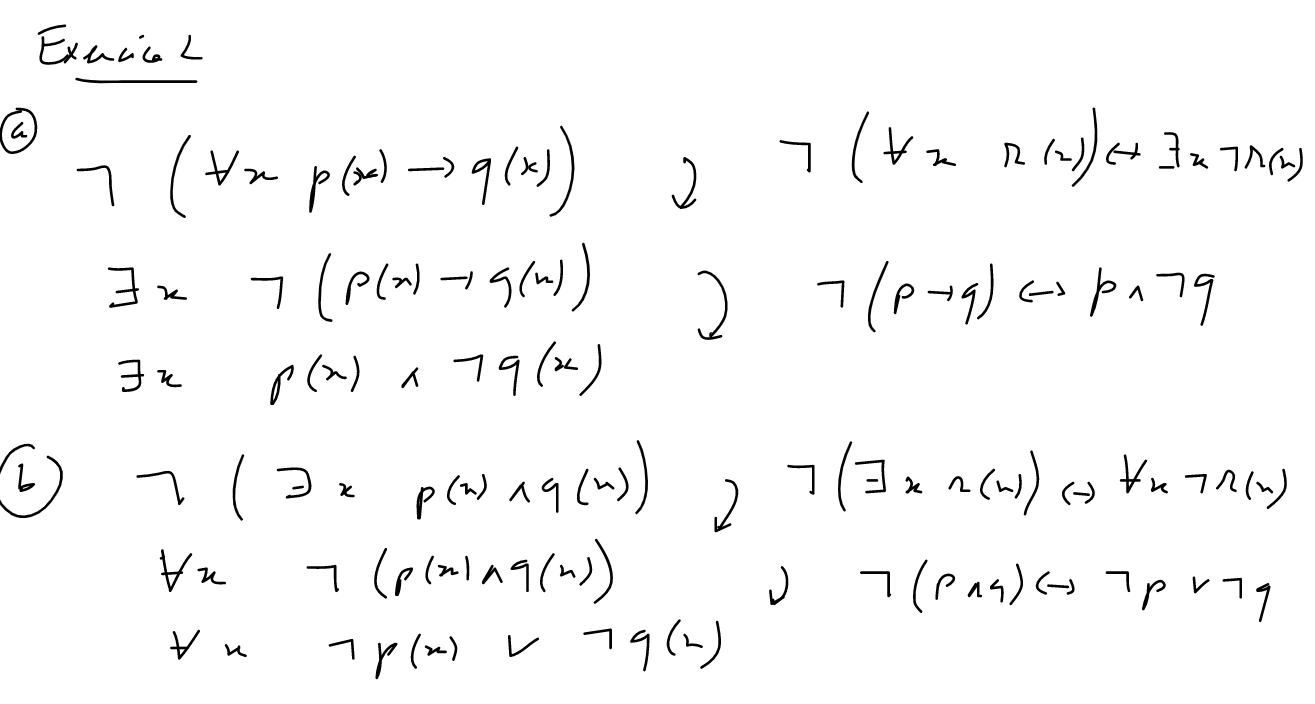 Exercice 2
(a) ¬ (∀x p(x) → q(x)) ⤵ ¬ (∀x r(x)) ↔ ∃x ¬r(x)
∃x ¬ (p(x) → q(x)) ⤵ ¬ (p → q) ↔ p ∧ ¬q
∃x p(x) ∧ ¬q(x)
(b) ¬ (∃x p(x) ∧ q(x)) ⤵ ¬ (∃x r(x)) ↔ ∀x ¬r(x)
∀x ¬ (p(x) ∧ q(x)) ⤵ ¬ (p ∧ q) ↔ ¬p ∨ ¬q
∀x ¬p(x) ∨ ¬q(x)